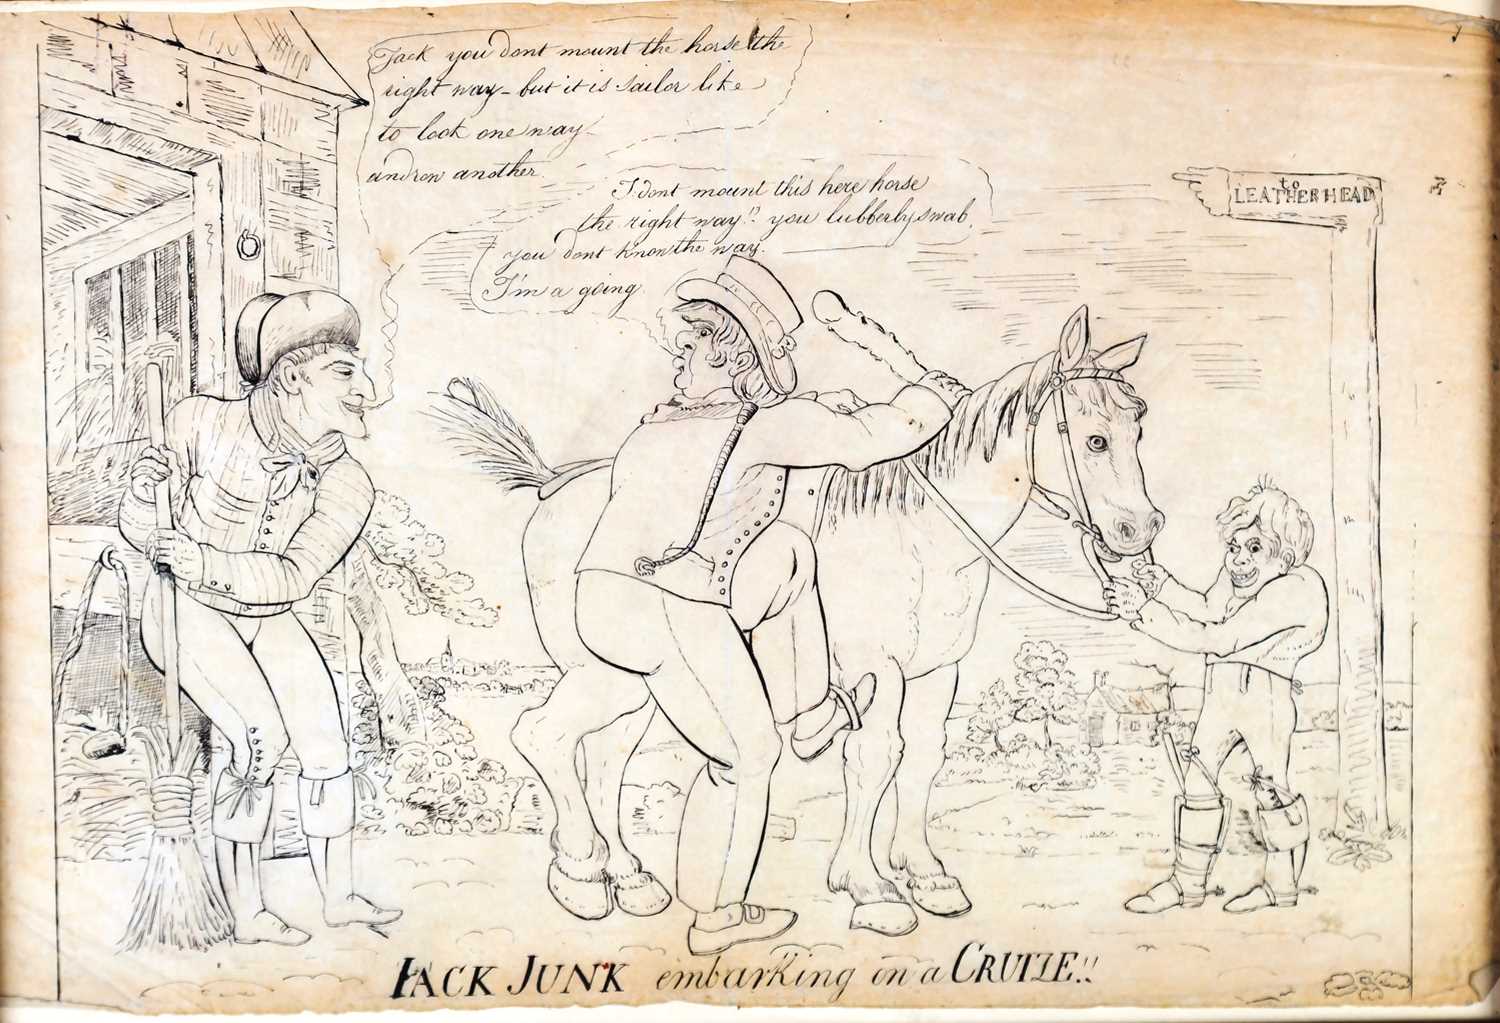 Jack you dont mount the horse the
right way - but it is sailor like
to look one way
and row another.
I dont mount this here horse
the right way!? you lubberly swab,
you dont know the way.
I'm a going
to
LEATHERHEAD
JACK JUNK embarking on a CRUTZE!!